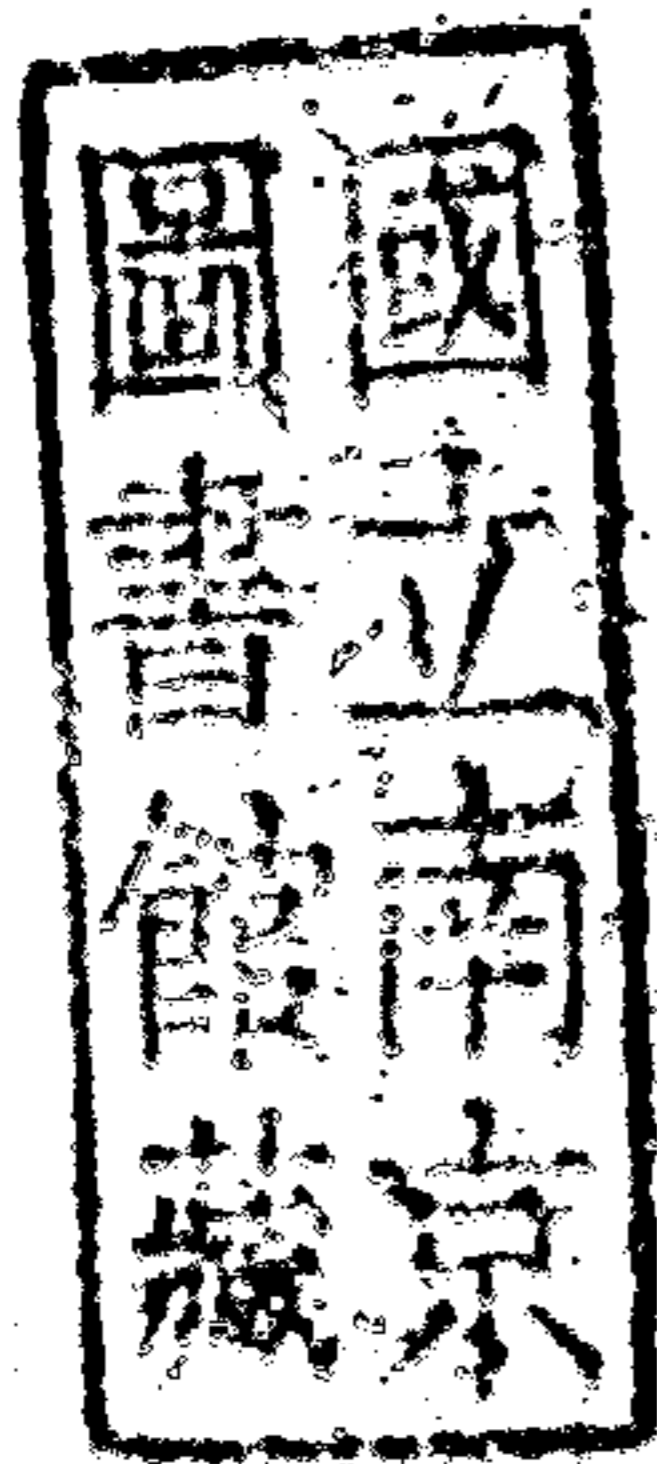 國立南京
圖書館藏